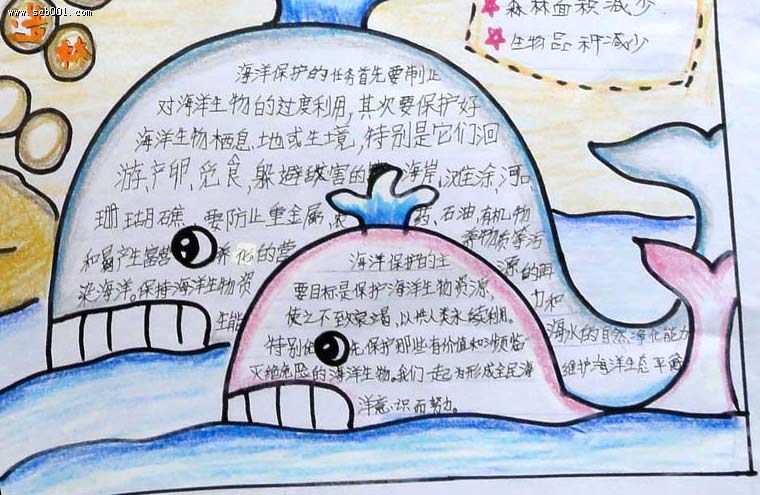 www.szb001.com
森林面积减少
生物品种减少
林
海洋保护的任务首先要制止
对海洋生物的过度利用,其次要保护好
海洋生物栖息地或生境,特别是它们洄
游、产卵、觅食、躲避敌害的 海岸、河口
珊瑚礁、要防止重金属、农 药、石油、有机物
和易产生富营 养化的营 养物质等污
染海洋。保持海洋生物资 源的再
生能 力和
海水的自然净化能力
维护海洋生态平衡
海洋保护的主
要目标是保护海洋生物资源,
使之不致衰竭,以供人类永续利用。
特别 先保护那些有价值和濒临
灭绝危险的海洋生物。我们一起为形成全民海
洋意识而努力。